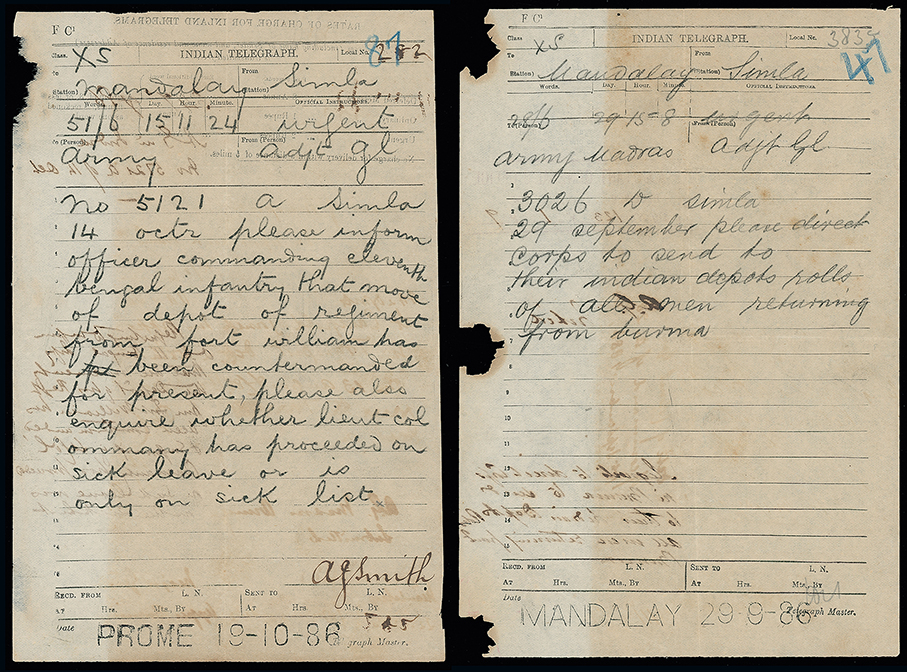 RATES OF CHARGE FOR INLAND TELEGRAMS
F C¹
Class. XS INDIAN TELEGRAPH. Local No. 87
To (Station) Mandalay From (Station) Simla
Words. Day. Hour. Minute. OFFICIAL INSTRUCTIONS.
51/6 15 11 24 urgent
To (Person) From (Person)
army adjt gl
No 5121 a Simla
14 octr please inform
officer commanding eleventh
bengal infantry that move
of depot of regiment
from fort william has
been countermanded
for present, please also
enquire whether lieut col
ommany has proceeded on
sick leave or is
only on sick list
AGSmith
RECD. FROM L. N. SENT TO L. N.
AT Hrs. Mts., By AT Hrs. Mts., By
Date Telegraph Master.
PROME 19-10-86
F C¹
Class XS INDIAN TELEGRAPH. Local No. 3835
41
To (Station) Mandalay From (Station) Simla
Words. Day. Hour. Minute. OFFICIAL INSTRUCTIONS.
28/6 29 15-8 urgent
To (Person) From (Person)
army Madras adjt Gl
3026 D simla
29 september please direct
corps to send to
their indian depots rolls
of all men returning
from burma
RECD. FROM L. N. SENT TO L. N.
AT Hrs. Mts., By AT Hrs. Mts., By
Date Telegraph Master.
MANDALAY 29-9-86